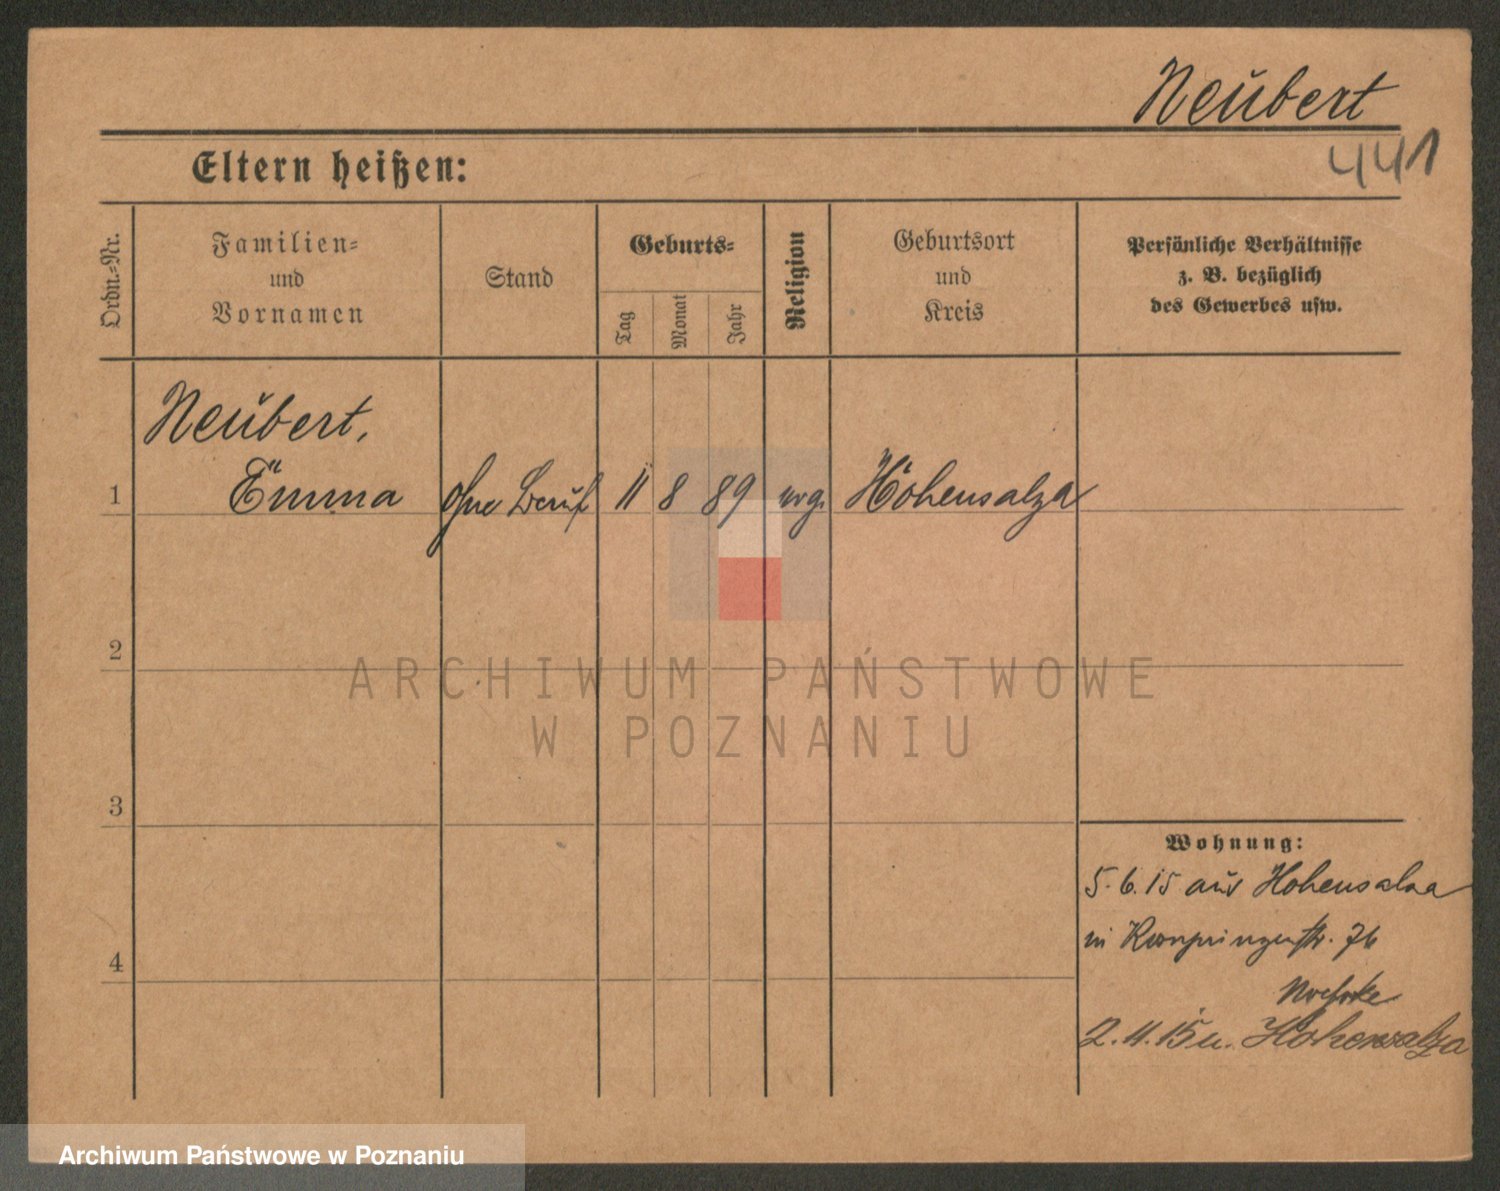 Neubert
441
Eltern heißen:
Ordn.-Nr.
Familien-
und
Vornamen
Stand
Geburts-
Tag
Monat
Jahr
Religion
Geburtsort
und
Kreis
Persönliche Verhältnisse
z. B. bezüglich
des Gewerbes usw.
Neubert,
1 Emma ohne Beruf 11 8 89 Hohensalza
2
ARCHIWUM PAŃSTWOWE
W POZNANIU
3
Wohnung:
5.6.15 aus Hohensalza
in Kronprinzenstr. 76
4
2.11.15 n. Hohensalza
Archiwum Państwowe w Poznaniu